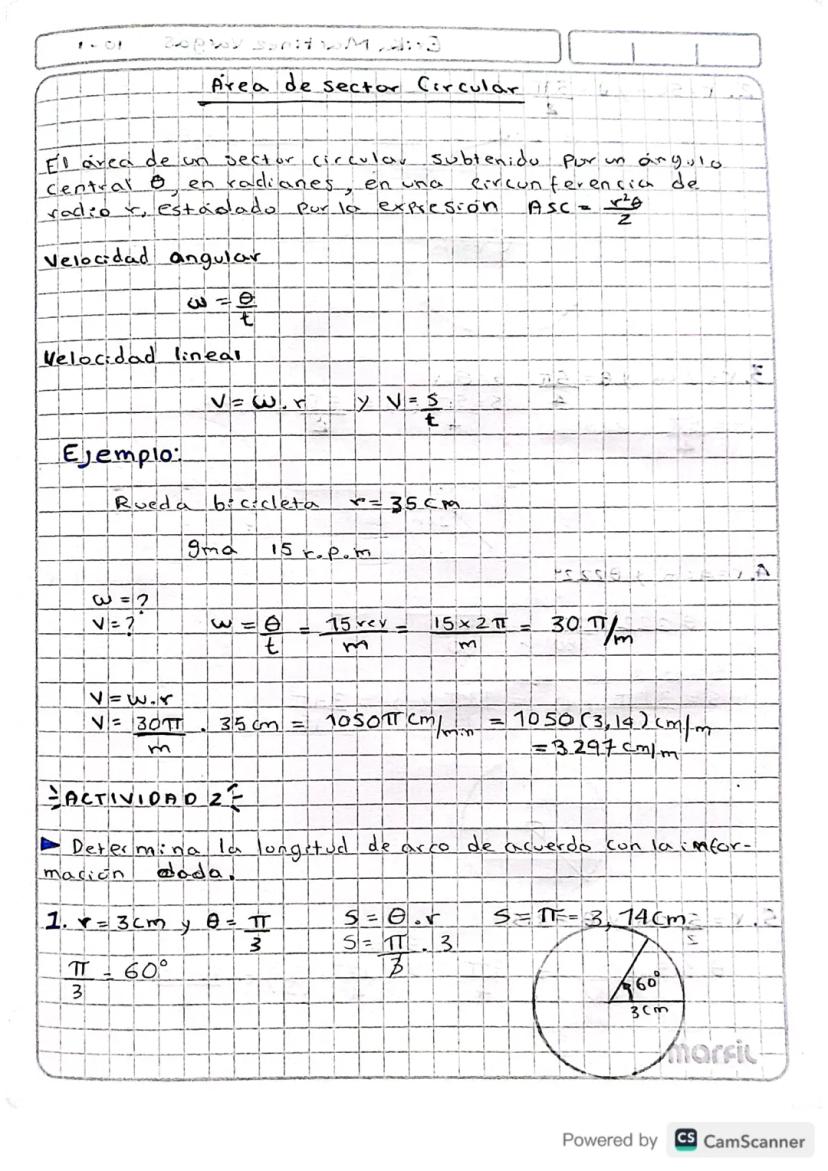 Área de sector Circular
El área de un sector circular subtenido por un ángulo
central θ, en radianes, en una circunferencia de
radio r, está dado por la expresión ASC = r²θ/2
Velocidad angular
ω = θ/t
Velocidad lineal
V = ω . r y V = s/t
Ejemplo:
Rueda bicicleta r = 35 cm
15 r.p.m
ω = ?
V = ? ω = θ/t = 15 rev/m = 15 x 2π/m = 30 π/m
V = ω . r
V = 30π/m . 35 cm = 1050 π cm/min = 1050 (3,14) cm/m
= 3297 cm/m
ACTIVIDAD 2
Determina la longitud de arco de acuerdo con la infor-
mación dada.
1. r = 3 cm y θ = π/3 S = θ . r S = π = 3,14 cm
S = π/3 . 3
π/3 = 60°
60°
3 cm
marfil
Powered by CS CamScanner